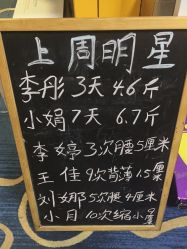 上周明星
李彤3天4.6斤
小娟7天6.7斤
李婷3次腰5厘米
王佳9次背薄1.5厘
刘娜5次腰4厘米
小月10次缩小